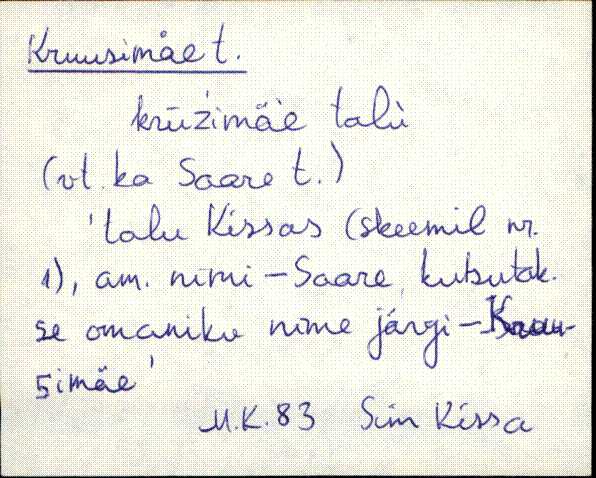 Kruusimäe t.
krūz'imäe talu
(vt. ka Saare t.)
'talu Kissas (skeemil nr.
1), am. nimi - Saare, kutsutak-
se omaniku nime järgi - Kruu-
simäe'
M.K. 83 Sim Kissa